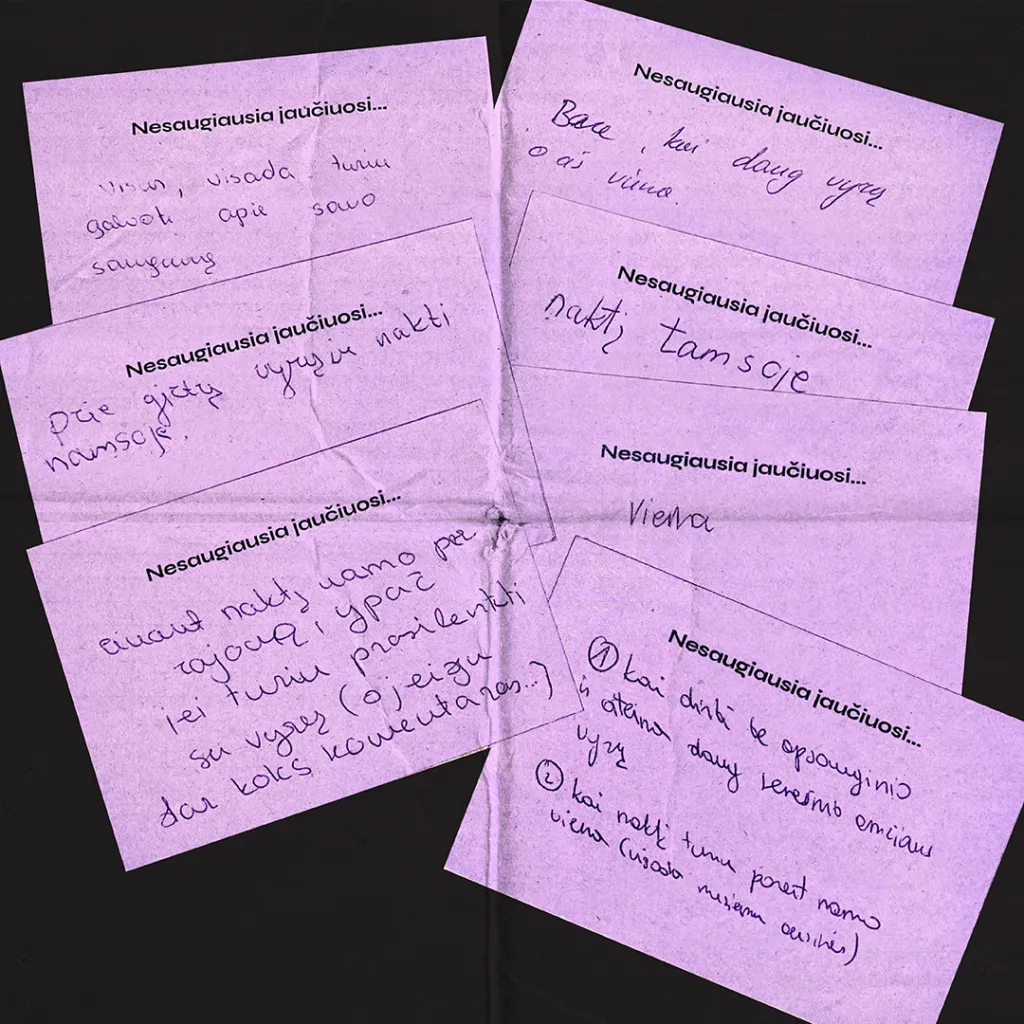 Nesaugiausia jaučiuosi...
visur, visada turiu
galvoti apie savo
saugumą
Nesaugiausia jaučiuosi...
Prie gėrtų vyrų ir naktį
namsoje.
Nesaugiausia jaučiuosi...
einant naktį namo per
rajoną, ypač
jei turiu prasilenkti
su vyrais (o jeigu
dar koks komentaras...)
Nesaugiausia jaučiuosi...
Bare, kai daug vyrų
o aš viena.
Nesaugiausia jaučiuosi...
naktį tamsoje
Nesaugiausia jaučiuosi...
Viena
Nesaugiausia jaučiuosi...
① kai dirbi be apsauginio
ir ateina daug senesnio amžiaus
vyrų
② kai naktį turiu pareit namo
viena (visada nešiena ausinės)